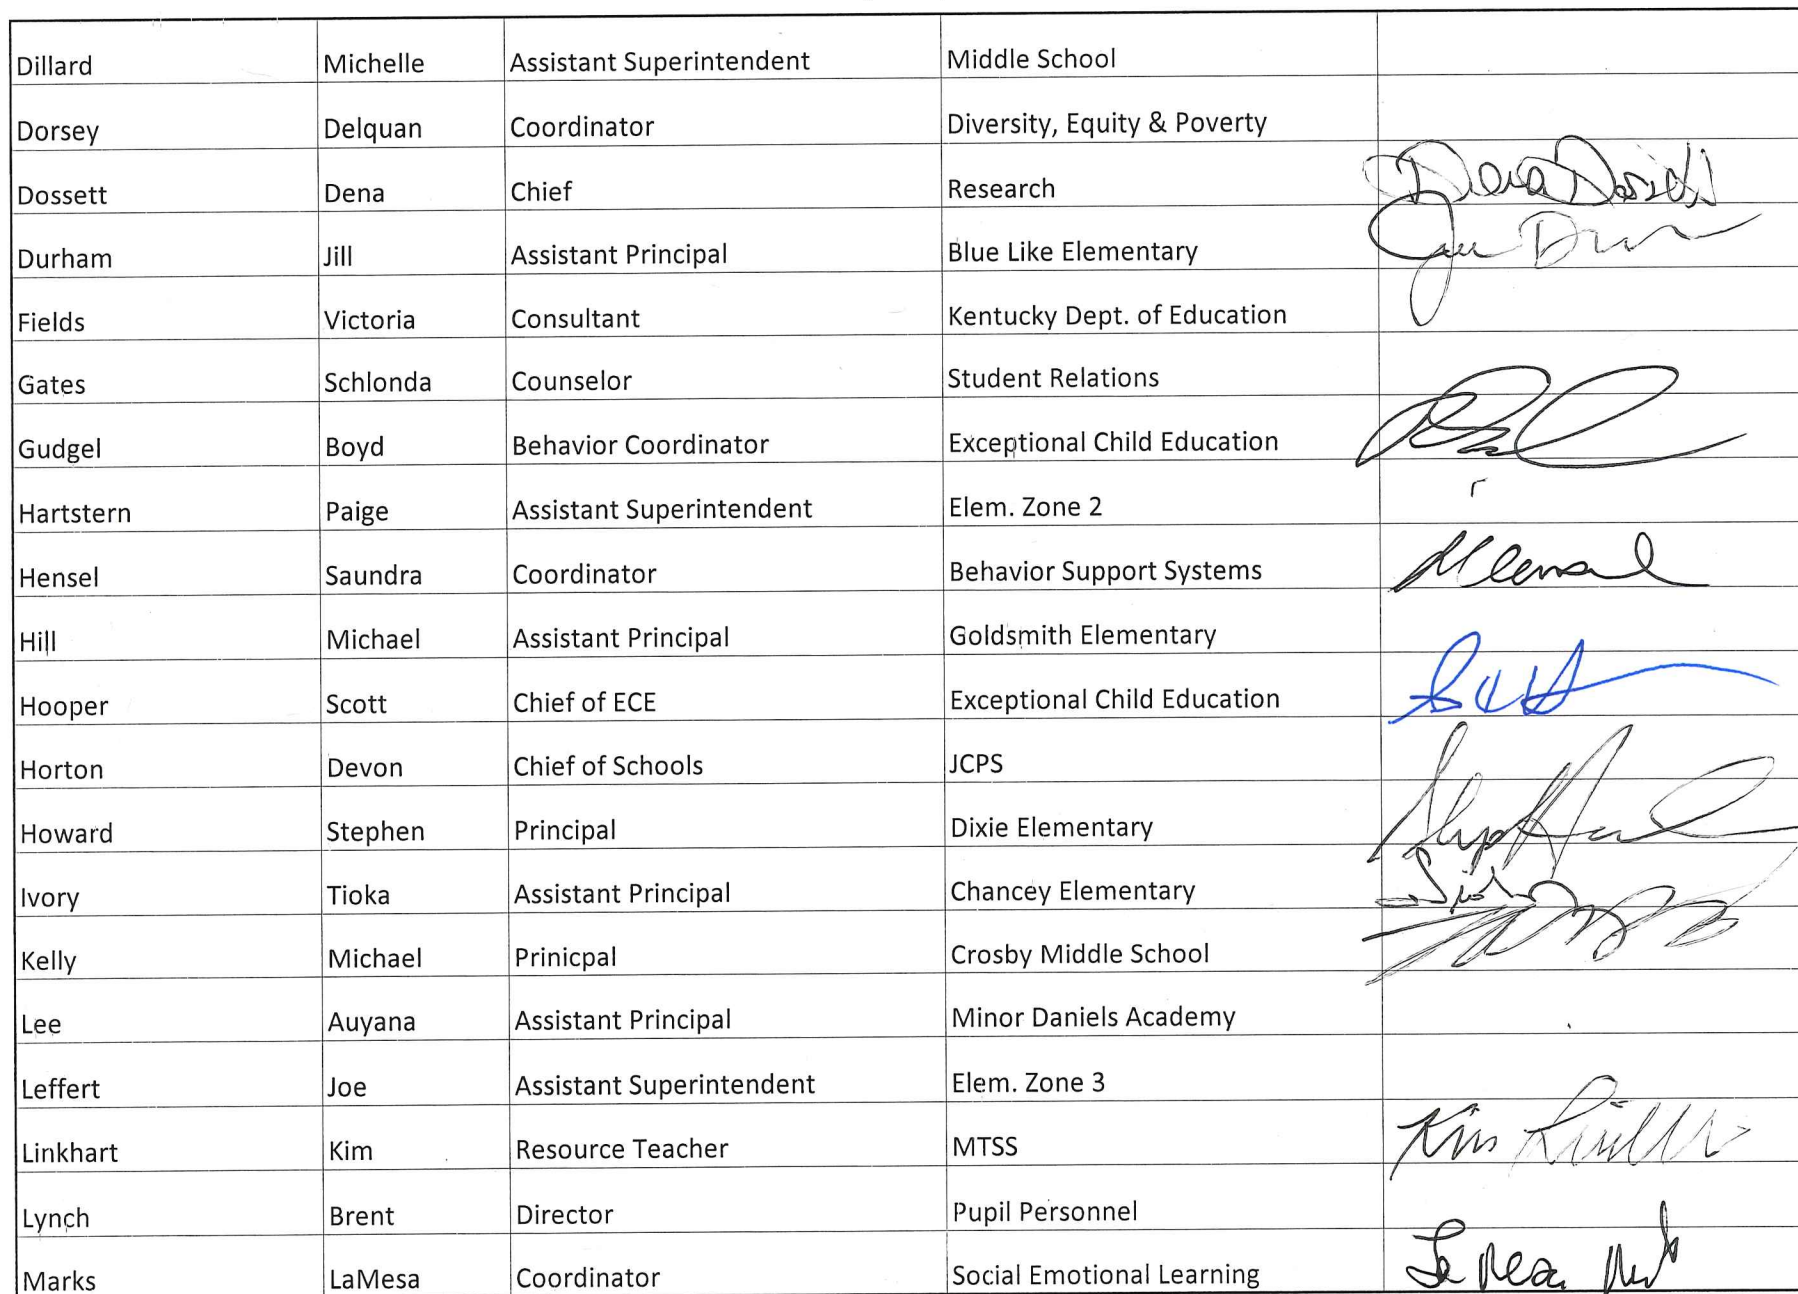 Dillard Michelle Assistant Superintendent Middle School
Dorsey Delquan Coordinator Diversity, Equity & Poverty
Dossett Dena Chief Research Dena Dossett
Durham Jill Assistant Principal Blue Like Elementary
Fields Victoria Consultant Kentucky Dept. of Education
Gates Schlonda Counselor Student Relations
Gudgel Boyd Behavior Coordinator Exceptional Child Education
Hartstern Paige Assistant Superintendent Elem. Zone 2
Hensel Saundra Coordinator Behavior Support Systems
Hill Michael Assistant Principal Goldsmith Elementary
Hooper Scott Chief of ECE Exceptional Child Education
Horton Devon Chief of Schools JCPS
Howard Stephen Principal Dixie Elementary
Ivory Tioka Assistant Principal Chancey Elementary
Kelly Michael Prinicpal Crosby Middle School
Lee Auyana Assistant Principal Minor Daniels Academy
Leffert Joe Assistant Superintendent Elem. Zone 3
Linkhart Kim Resource Teacher MTSS Kim
Lynch Brent Director Pupil Personnel
Marks LaMesa Coordinator Social Emotional Learning